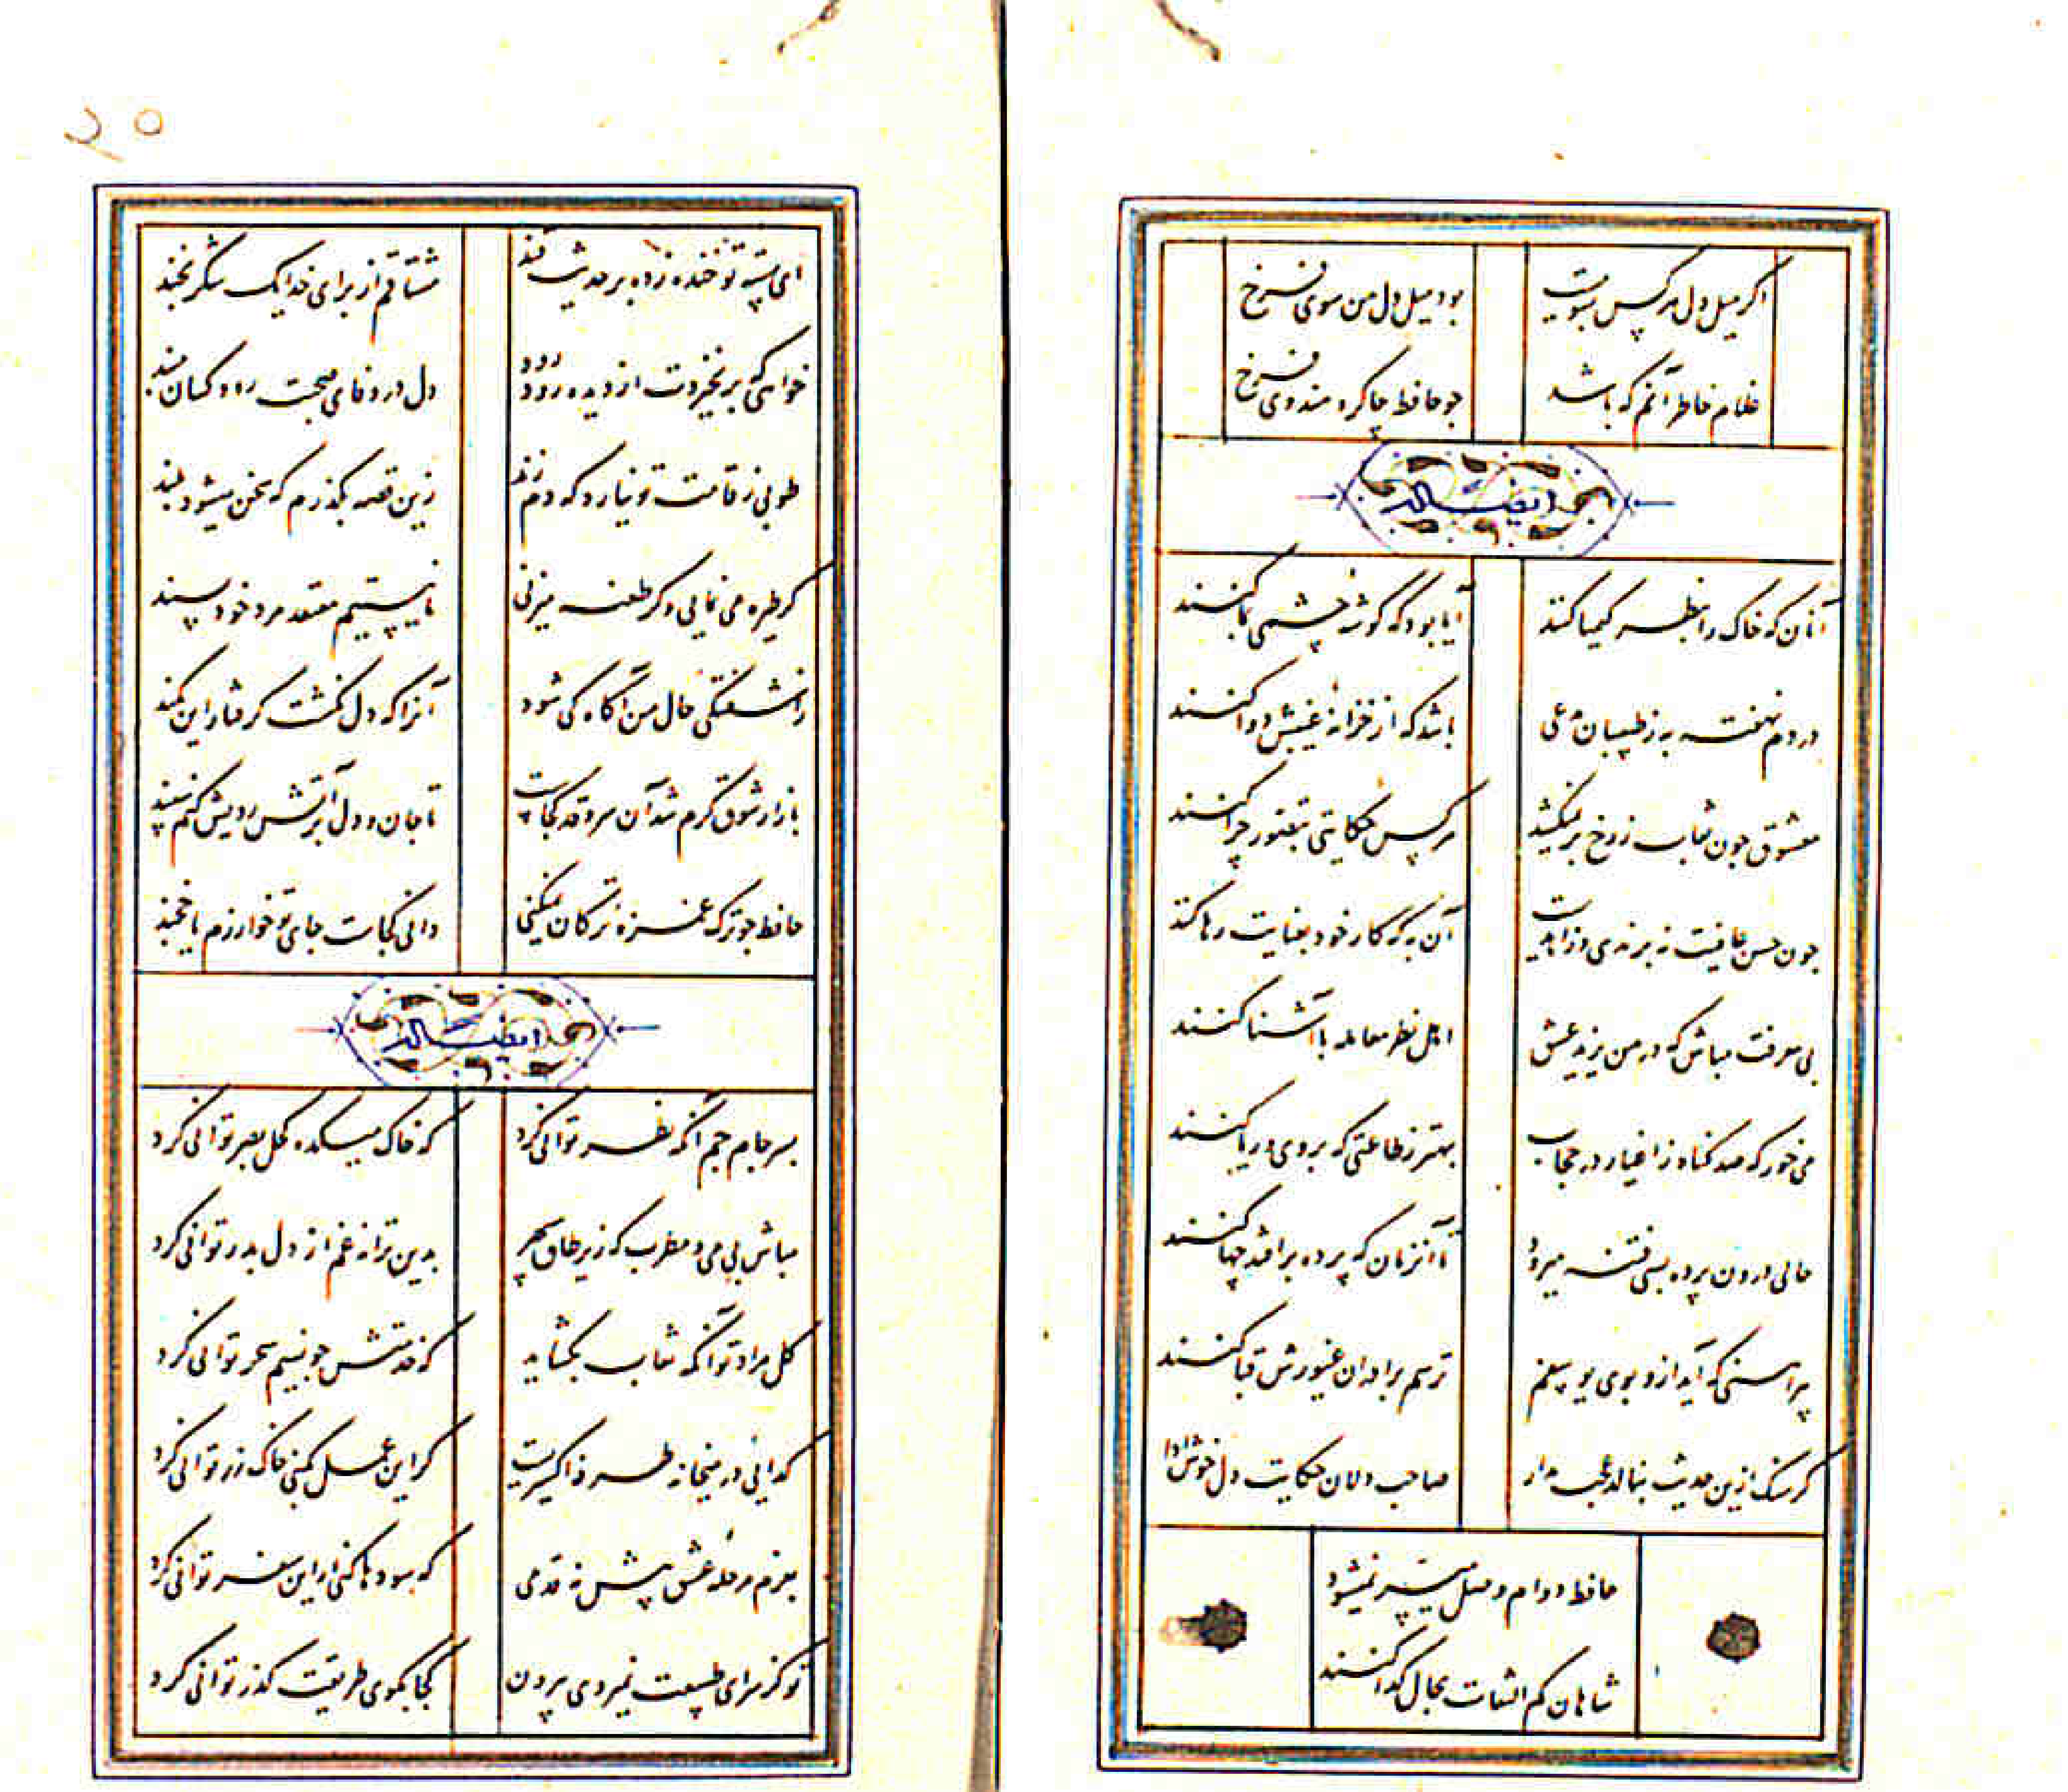 اگر میل دل هر کس بسوییست
بود میل دل من سوی فرخ
غلام خاطر آنم که باشد
چو حافظ چاکر هندوی فرخ
ایضاً له
آنان که خاک را بنظر کیمیا کنند
آیا بود که گوشه چشمی بما کنند
دردم نهفته به ز طبیبان مدعی
باشد که از خزانه غیبش دوا کنند
معشوق چون نقاب ز رخ بر نمیکشد
هر کس حکایتی بتصور چرا کنند
چون حسن عاقبت نه برندی و زاهدیست
آن به که کار خود بعنایت رها کنند
بی معرفت مباش که در من یزید عشق
اهل نظر معامله با آشنا کنند
می خور که صد گناه ز اغیار در حجاب
بهتر ز طاعتی که بروی و ریا کنند
حالی درون پرده بسی فتنه میرود
تا آنزمان که پرده برافتد چها کنند
پیراهنی که آید ازو بوی یوسفم
ترسم برادران غیورش قبا کنند
گر سنگ ازین حدیث بنالد عجب مدار
صاحب دلان حکایت دل خوش ادا
حافظ دوام وصل میسر نمیشود
شاهان کم التفات بحال گدا کنند
۲۰
ای پسته تو خنده زده بر حدیث قند
مشتاقم از برای خدا یک شکر بخند
خواهی که بر نخیزدت از دیده رود رود
دل در وفای صحبت رود کسان مبند
طوبی ز قامت تو نیارد که دم زند
زین قصه بگذرم که سخن میشود بلند
گر طیره می نمایی و گر طعنه میزنی
ما نیستیم معتقد مرد خود پسند
ز آشفتگی حال من آگاه کی شود
آنرا که دل نگشت گرفتار این کمند
بازار شوق گرم شد آن سرو قد کجاست
تا جان و دل بر آتش رویش کنم سپند
حافظ چو ترک غمزه ترکان نمیکنی
دانی کجاست جای تو خوارزم یا خجند
ایضاً له
بسر جام جم آنگه نظر توانی کرد
که خاک میکده کحل بصر توانی کرد
مباش بی می و مطرب که زیر طاق سپهر
بدین ترانه غم از دل بدر توانی کرد
گل مراد تو آنگه نقاب بگشاید
که خدمتش چو نسیم سحر توانی کرد
گدائی در میخانه طرفه اکسیریست
گر این عمل بکنی خاک زر توانی کرد
بعزم مرحله عشق پیش نه قدمی
که سودها کنی ار این سفر توانی کرد
تو کز سرای طبیعت نمیروی بیرون
کجا بکوی طریقت گذر توانی کرد